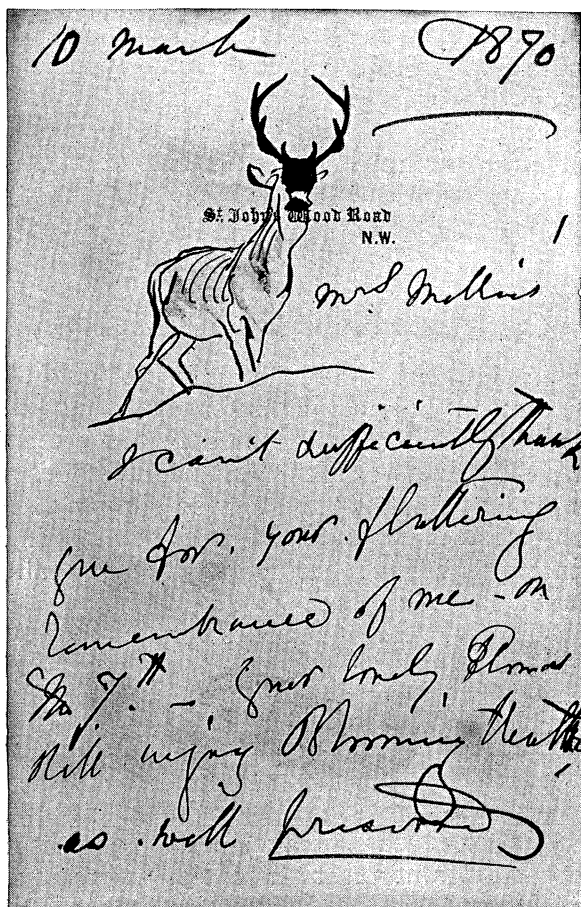 10 March 1870
St. John's Wood Road
N.W.
Mrs Mellins
I can't sufficiently thank
you for. your. flattering
remembrance of me - on
the 7.th - your lovely Flowers
still enjoy Blooming Health
as. well